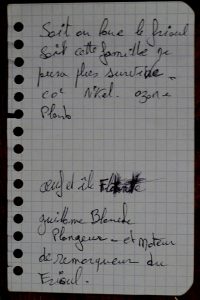 Soit on loue le frioul
Soit cette famille ne
pourra plus survivre -
co² Nikel. ozone
Plomb
œuf et île
guillaume Blanche
Plongeur - et Moteur
de remorqueur du
Frioul.